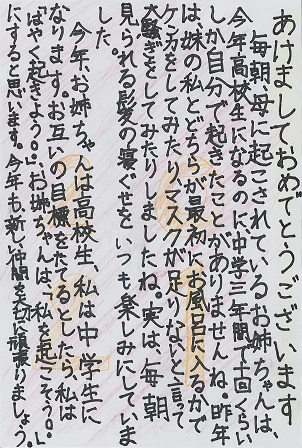 あけましておめでとうございます
毎朝、母に起こされているお姉ちゃんは、
今年高校生になるのに、中学三年間で十回くらい
しか自分で起きたことがありませんね。昨年
は、妹の私とどちらが最初にお風呂に入るかで
ケンカをしてみたりマスクが足りないと言って
大騒ぎをしてみたりしましたね。実は、毎朝
見られる髪の寝ぐせをいつも楽しみにしていま
した。
今年、お姉ちゃんは高校生、私は中学生に
なります。お互いの目標をたてるとしたら、私は
「はやく起きよう。」お姉ちゃんは、「私を起こそう。」
にすると思います。今年も新しい仲間を大切に頑張りましょう。